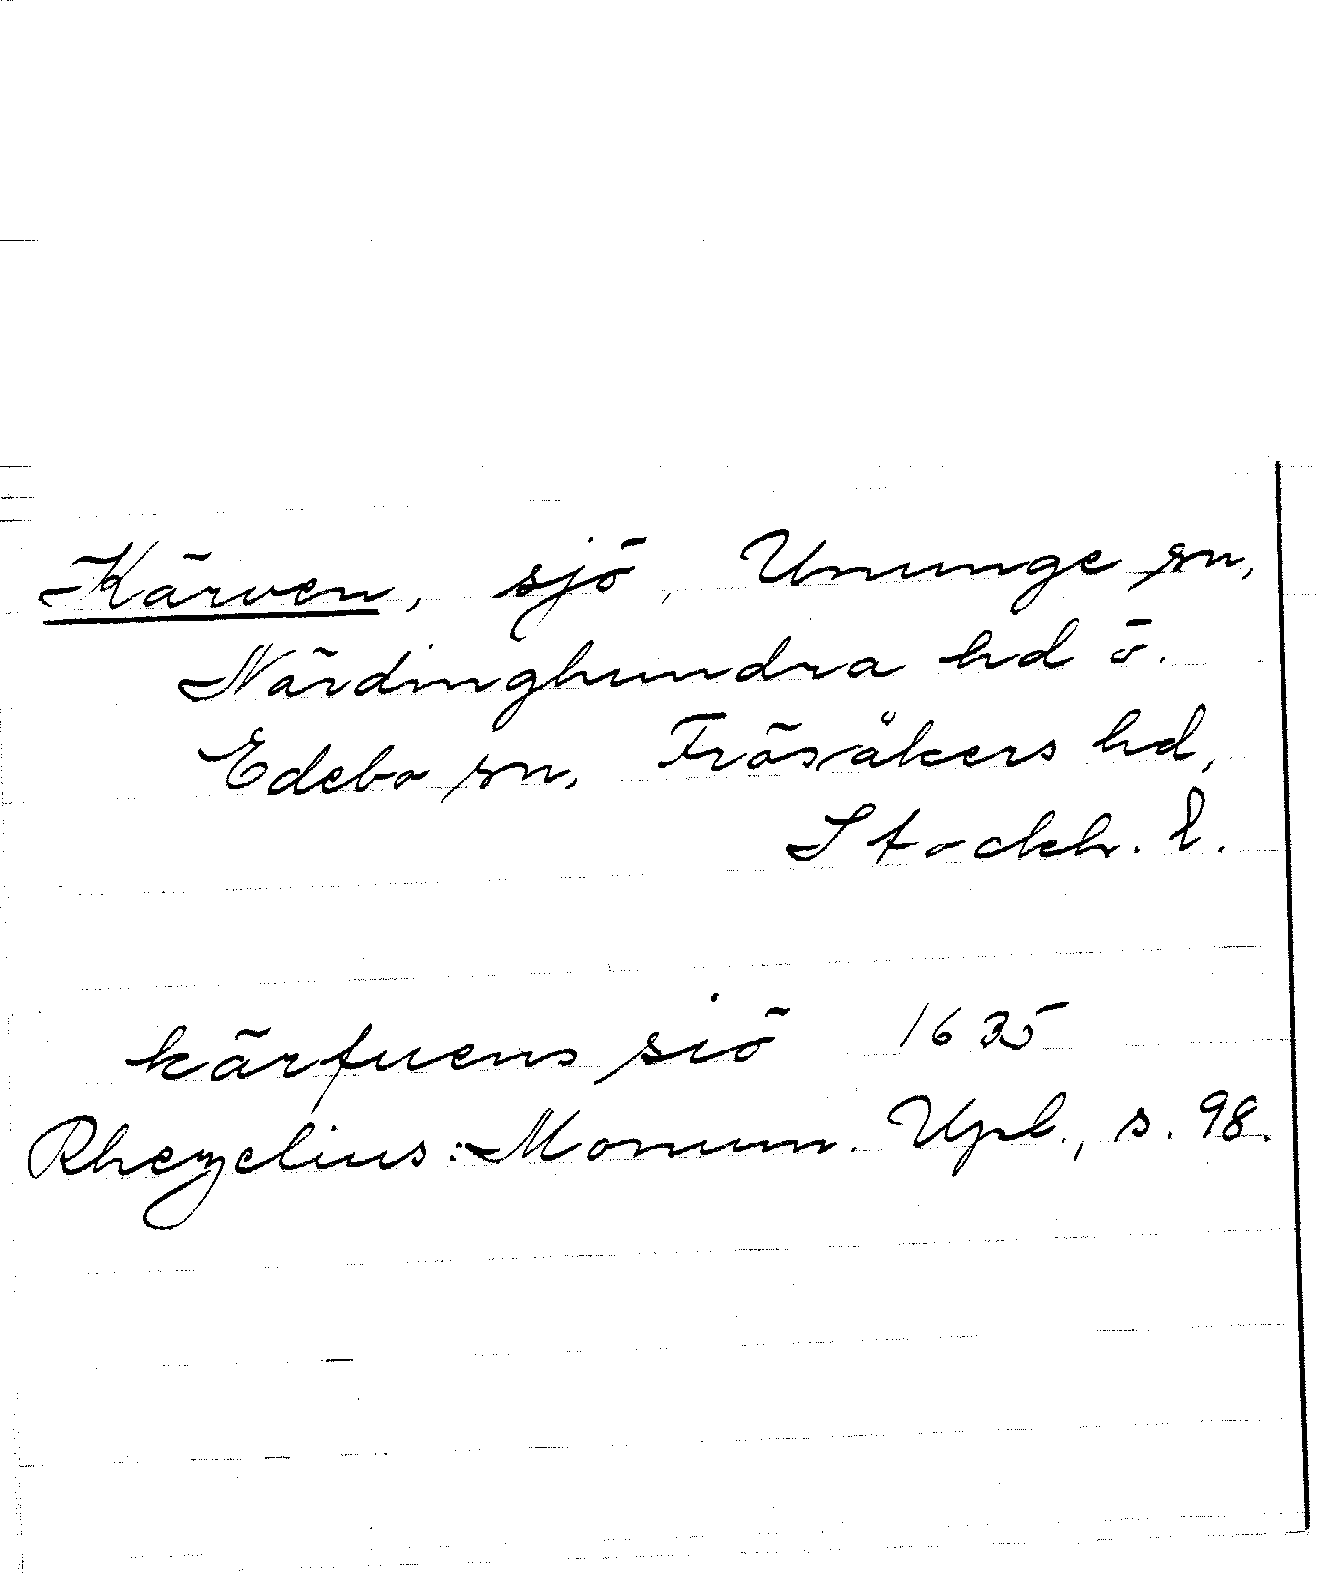 Kärven, sjö, Ununge sn,
Närdinghundra hd ö.
Edebo sn, Frösåkers hd,
Stockh. l.
kärfuens siö 1635
Rhezelius: Monum. Upl., s. 98.